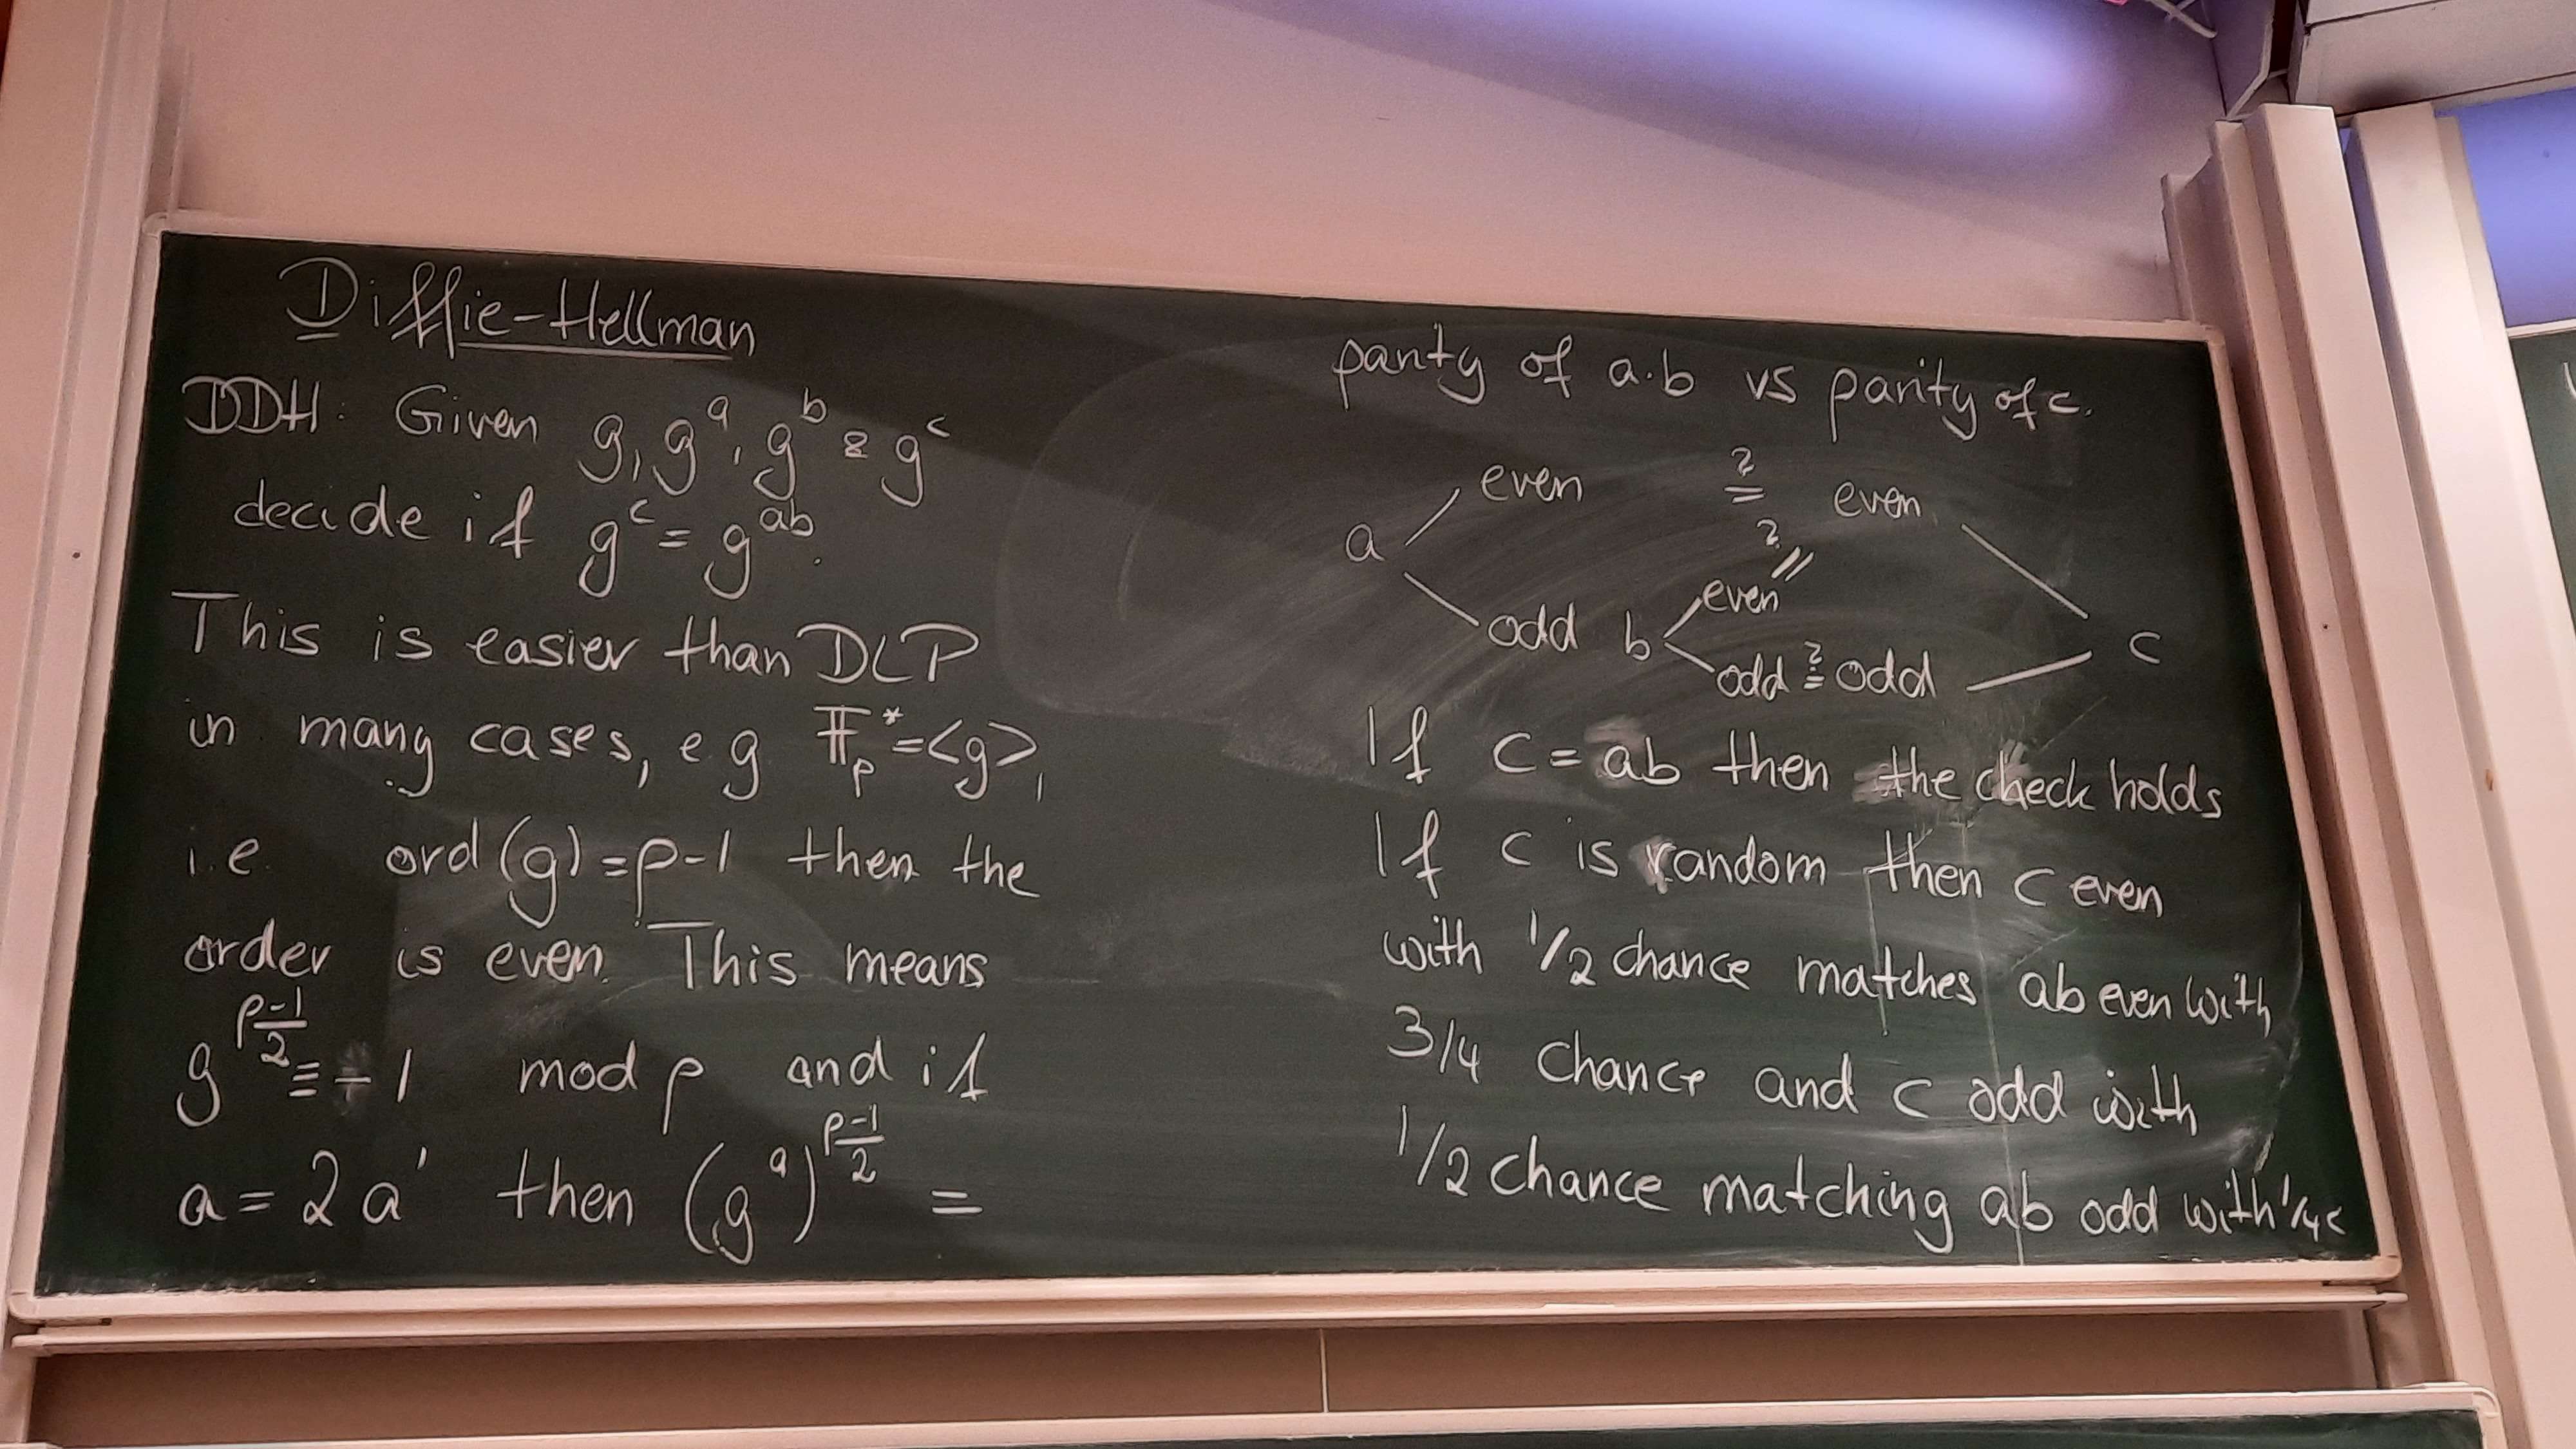 Diffie-Hellman
DDH: Given g, g^a, g^b & g^c
decide if g^c = g^ab.
This is easier than DLP
in many cases, e g 𝔽_p^* = <g>,
i.e ord(g) = p-1 then the
order is even. This means
g^((p-1)/2) ≡ -1 mod p and if
a = 2a' then (g^a)^((p-1)/2) =
parity of a·b vs parity of c.
even ≟ even
a ? c
even =
odd b
odd ≟ odd
If c = ab then the check holds
If c is random then c even
with 1/2 chance matches ab even with
3/4 chance and c odd with
1/2 chance matching ab odd with 1/4 c